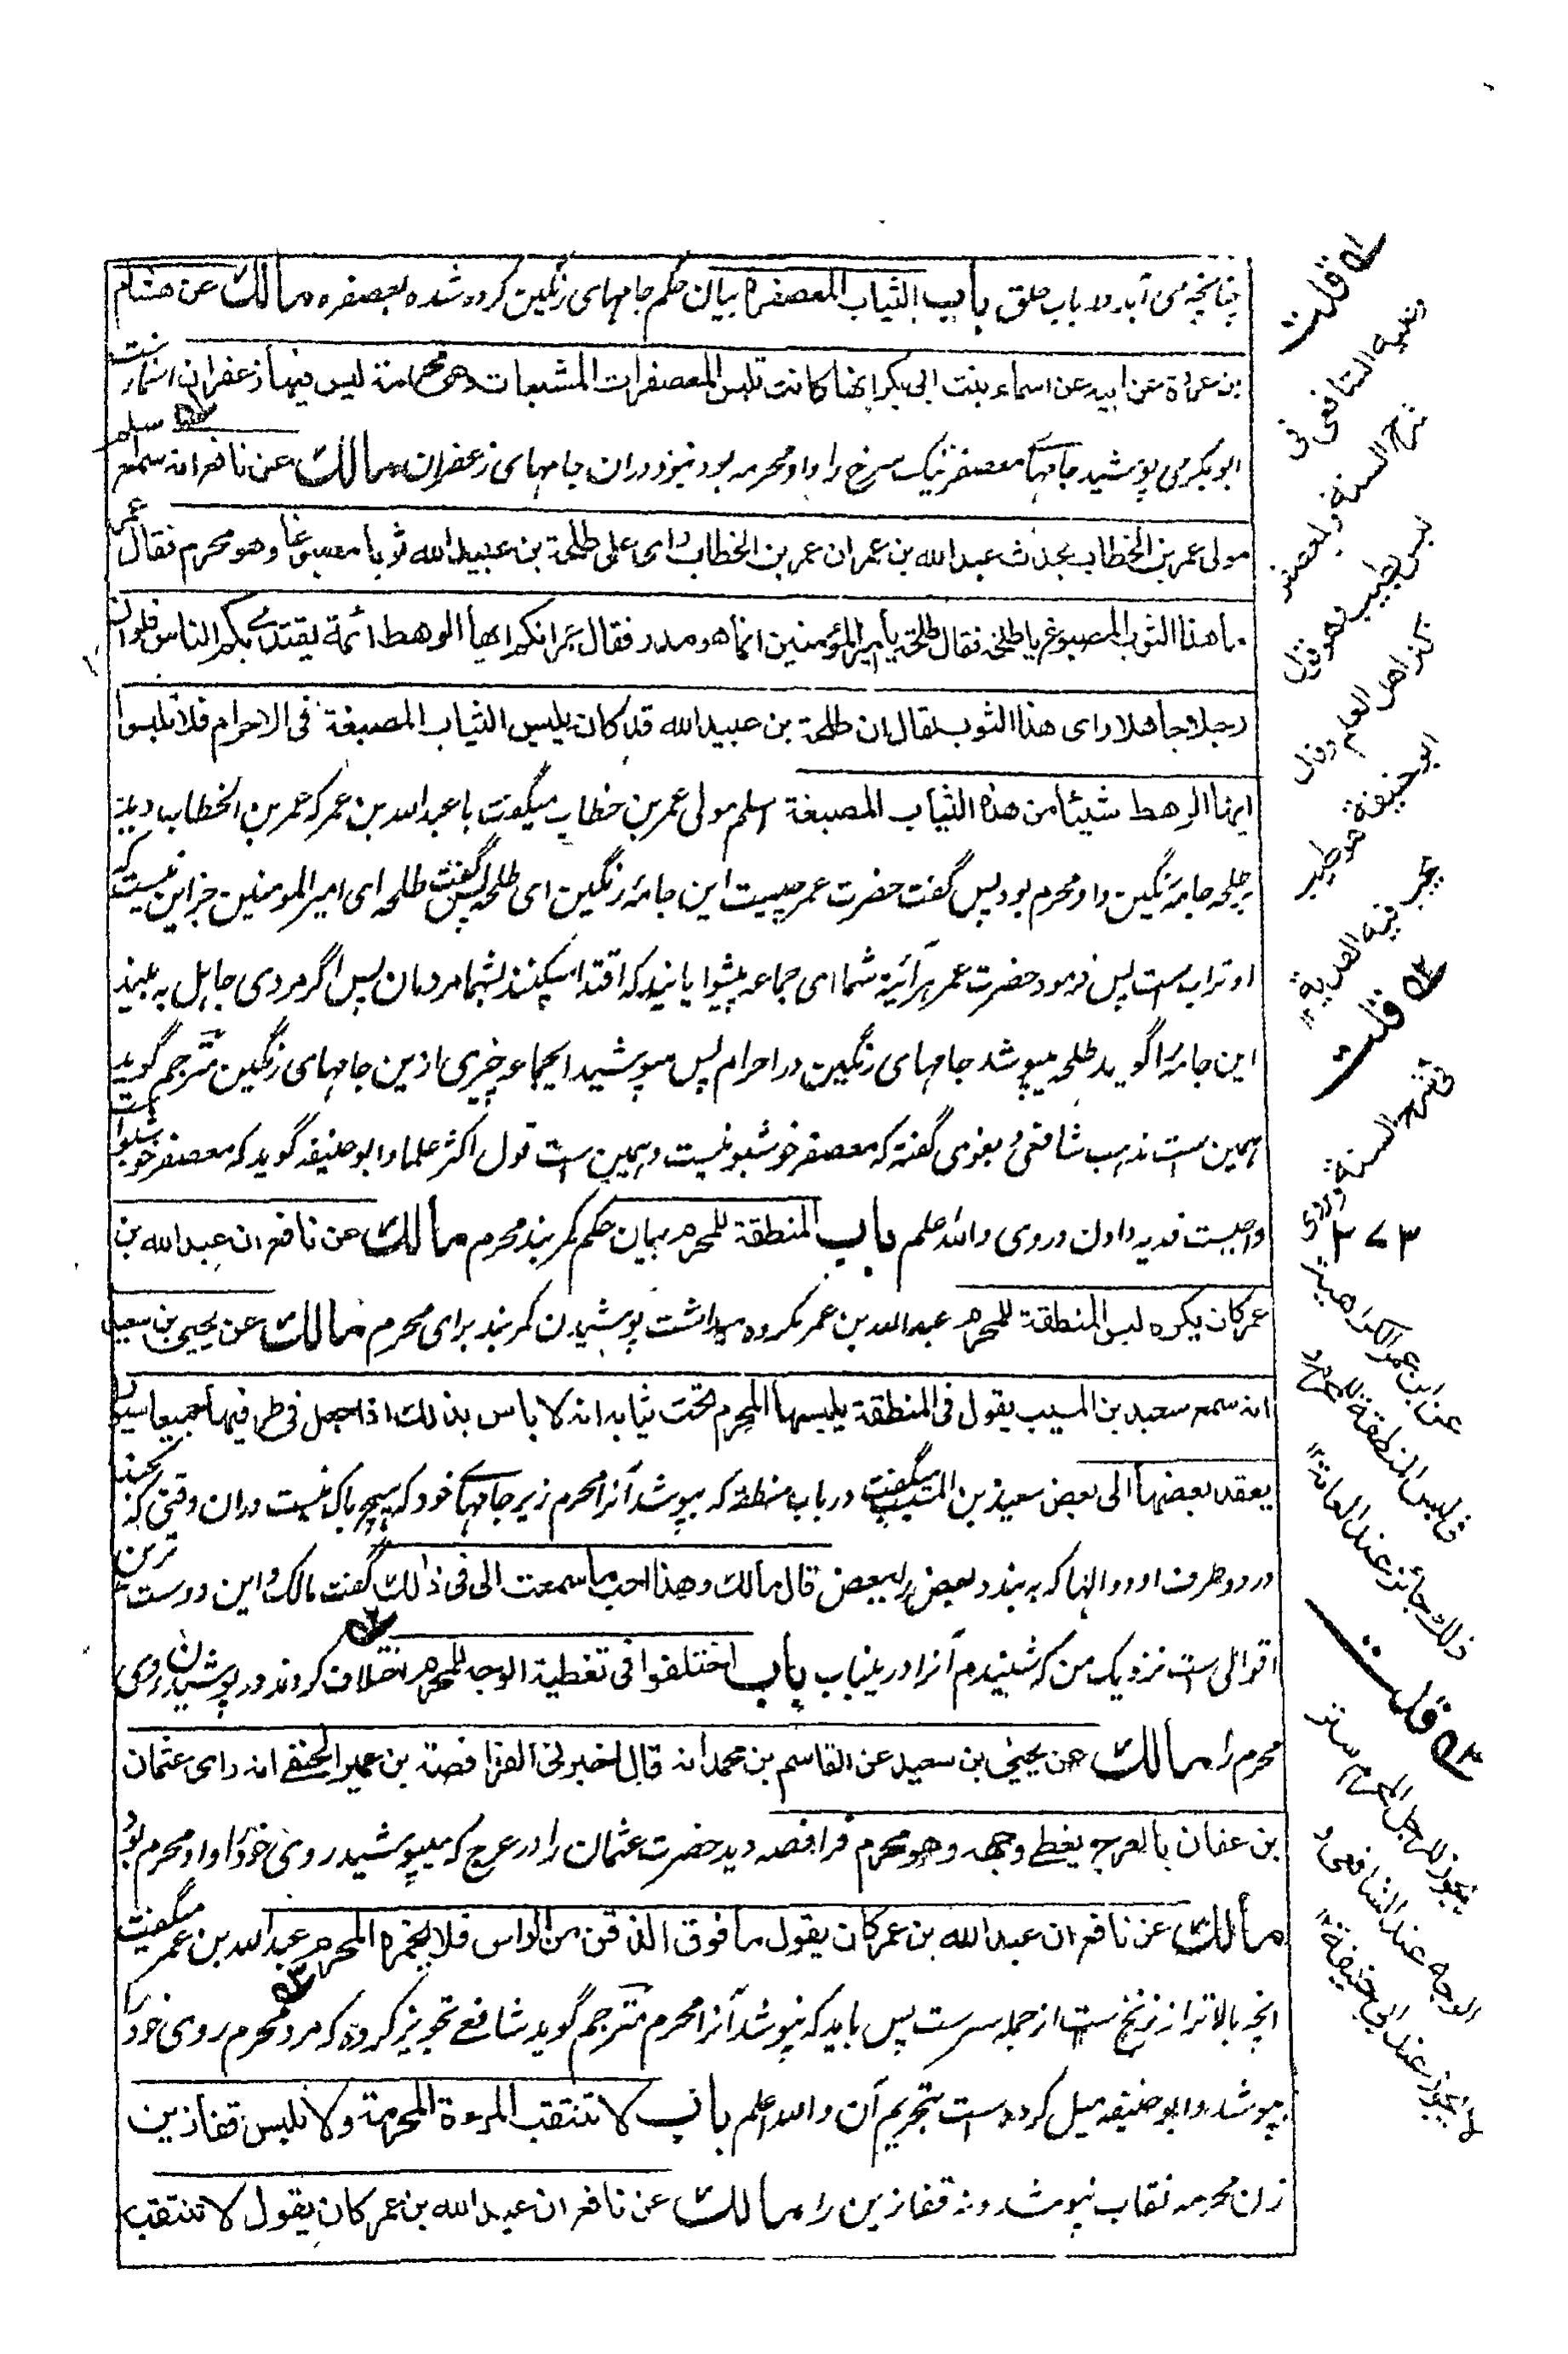 چنانچه می آید در باب حلق باب الثیاب المعصفرة بیان حکم جامهای رنگین کرده شده بعصفره مالك عن هشام
بن عروة عن ابیه عن اسماء بنت ابی بکر انها کانت تلبس المعصفرات المشبعات وهی محرمة لیس فیها زعفران اسماء بنت
ابوبکر می پوشید جامهای معصفر نیک سرخ را و او محرمه بود نبود دران جامهای زعفران مالك عن نافع انه سمع اسلم
مولی عمر بن الخطاب یحدث عبد الله بن عمر ان عمر بن الخطاب رای علی طلحة بن عبید الله ثوبا مصبوغا وهو محرم فقال عمر
ما هذا الثوب المصبوغ یا طلحة فقال طلحة یا امیر المؤمنین انما هو مدر فقال عمر انکم ایها الرهط ائمة یقتدی بکم الناس فلو ان
رجلا جاهلا رای هذا الثوب لقال ان طلحة بن عبید الله قد کان یلبس الثیاب المصبغة فی الاحرام فلا تلبسوا
ایها الرهط شیئا من هذه الثیاب المصبغة اسلم مولی عمر بن خطاب میگفت با عبد الله بن عمر که عمر بن الخطاب دید
بر طلحه جامهٔ رنگین و او محرم بود پس گفت حضرت عمر چیست این جامهٔ رنگین ای طلحه پس گفت طلحه ای امیر المومنین جز این نیست که
او تراب ست پس فرمود حضرت عمر هرآئینه شما ای جماعه پیشوایانید که اقتدا میکنند بشما مردمان پس اگر مردی جاهل به بیند
این جامه را گوید طلحه میپوشد جامهای رنگین در احرام پس مپوشید ایجماعه چیزی ازین جامهای رنگین مترجم گوید
همین ست مذهب شافعی و بغوی گفته که معصفر خوشبو نیست و همین ست قول اکثر علما و ابوحنیفه گوید که معصفر خوشبو است
واجبست فدیه دادن در وی والله اعلم باب المنطقة للمحرم بیان حکم کمربند محرم مالك عن نافع ان عبد الله بن
عمر کان یکره لبس المنطقة للمحرم عبد الله بن عمر مکروه میداشت پوشیدن کمربند برای محرم مالك عن یحیی بن سعید
انه سمع سعید بن المسیب یقول فی المنطقة یلبسها المحرم تحت ثیابه انه لا باس بذلك اذا جعل فی طرفیها جمیعا سیورا
یعقد بعضها الی بعض سعید بن المسیب میگفت در باب منطقه که بپوشد آنرا محرم زیر جامهای خود که هیچ باک نیست دران وقتی که بکند
در دو طرف او دوالها که به بندد بعض را ببعض قال مالك وهذا احب ما سمعت الی فی ذلك گفت مالک و این دوست ترین
اقوالی ست نزدیک من که شنیدم آنرا درینباب باب اختلفوا فی تغطیة الوجه للمحرم اختلاف کردند در پوشیدن روی
محرم را مالك عن یحیی بن سعید عن القاسم بن محمد انه قال اخبرنی الفرافصة بن عمیر الحنفی انه رای عثمان
بن عفان بالعرج یغطی وجهه وهو محرم فرافصه دید حضرت عثمان را در عرج که میپوشید روی خود را و او محرم بود
مالك عن نافع ان عبد الله بن عمر کان یقول ما فوق الذقن من الراس فلا یخمره المحرم عبد الله بن عمر میگفت
انچه بالاتر از زنخ ست از جمله سر ست پس باید که نپوشد آنرا محرم مترجم گوید شافعی تجویز کرده که مرد محرم روی خود را
بپوشد و ابوحنیفه میل کرده است بتحریم آن والله اعلم باب لا تنتقب المرءة المحرمة ولا تلبس قفازین
زن محرمه نقاب نپوشد و نه قفازین را مالك عن نافع ان عبد الله بن عمر کان یقول لا تنتقب
له قلت
علیه الشافعی فی
شرح السنة والمعصفر
لیس بطیب وهو قول
اکثر اهل العلم وقال
ابو حنیفة هو طیب
یجب فیه الفدیة
٢ه قلت
فی شرح السنة وروی
٣٧٣
عن ابن عمر الکراهیة
فی لبس المنطقة للمحرم و
ذلك جائز عند العامة
٣ه قلت
یجوز للرجل المحرم ستر
الوجه عند الشافعی و
لا یجوز عند ابی حنیفة